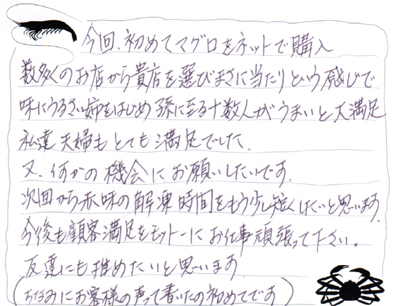 今回、初めてマグロをネットで購入
数多くのお店から貴店を選びまさに当たりという感じで
味にうるさい姉をはじめ孫に至る十数人がうまいと大満足
私達夫婦もとても満足でした。
又、何かの機会にお願いしたいです。
次回から赤味の解凍時間をもう少し短くしたいと思います。
今後も顧客満足をモットーにお仕事頑張って下さい。
友達にも推めたいと思います
(ちなみにお客様の声って書いたの初めてです)